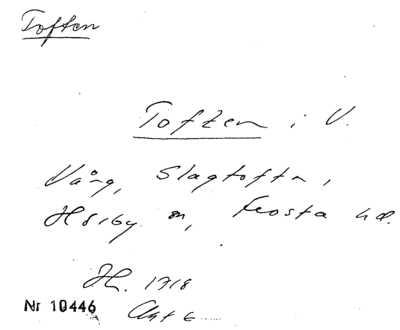 Toften
Toften i V.
Vång, Slagtofta,
Hörby sn, Frosta hd.
JH. 1718
Nr 10446 Akt 6